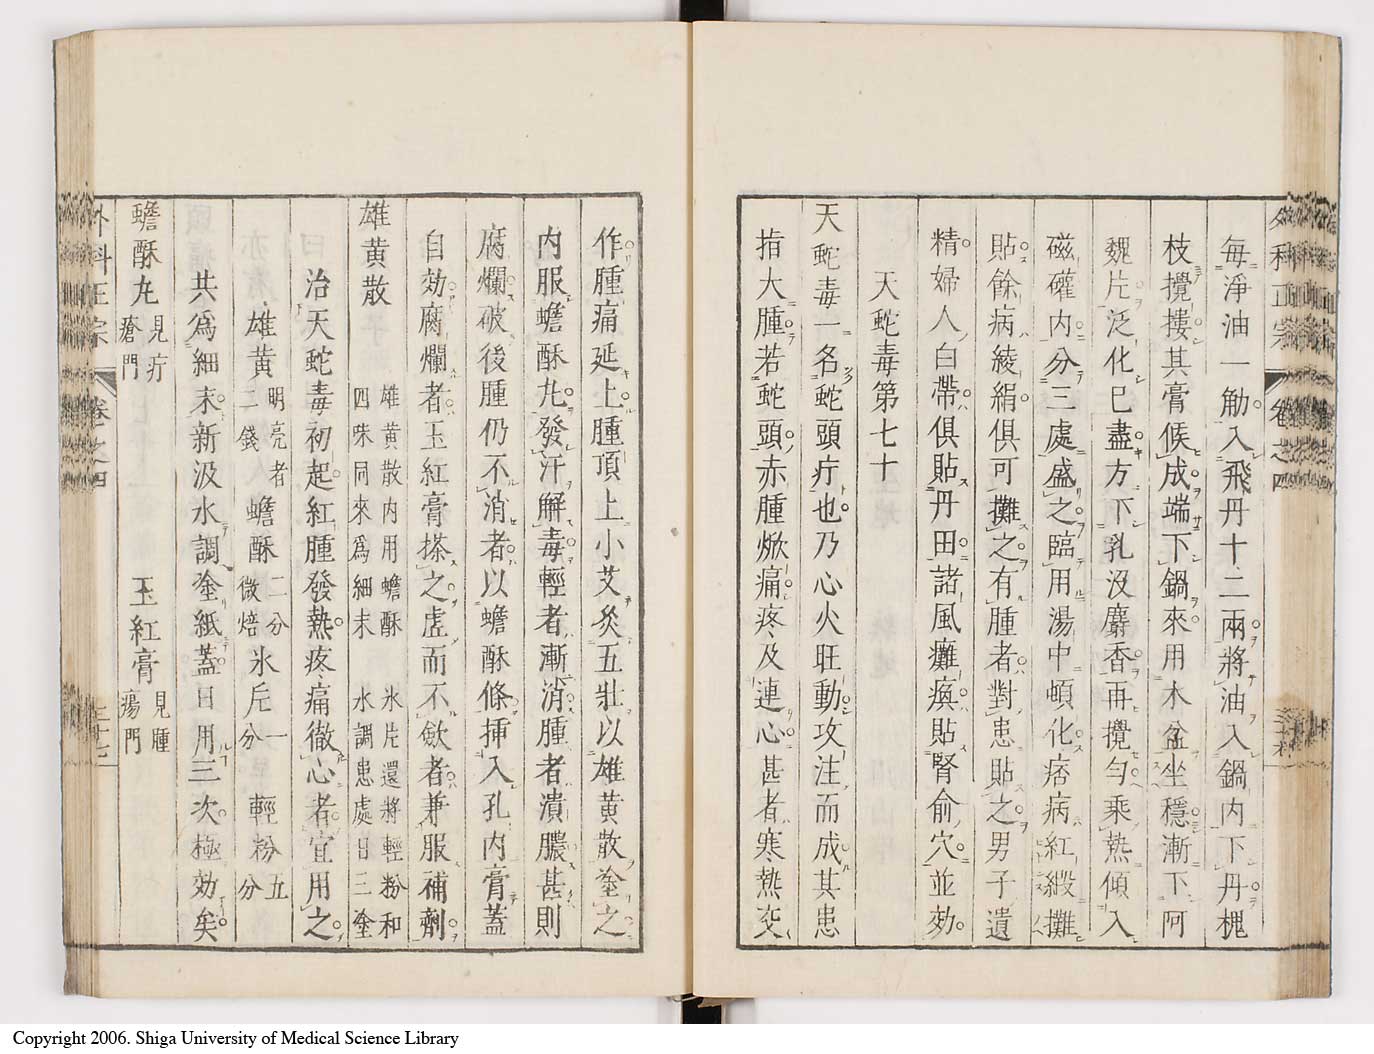 外科正宗 卷之四
每淨油一觔入飛丹十二兩將油入鍋内下丹槐
枝攪搂其膏候成端下鍋來用木盆坐穩漸下阿
魏片泛化巳盡方下乳没麝香再攪勻乘熱傾入
磁礶内分三處盛之臨用湯中頓化痞病紅緞攤
貼餘病綾絹俱可攤之有腫者對患貼之男子遺
精婦人白帶俱貼丹田諸風癱瘓貼腎俞穴並効
天蛇毒第七十
天蛇毒一名蛇頭疔也乃心火旺動攻注而成其患
指大腫若蛇頭赤腫焮痛疼及連心甚者寒熱交
作腫痛延上腫頂上小艾灸五壯以雄黄散塗之
内服蟾酥丸發汗解毒輕者漸消腫者潰膿甚則
腐爛破後腫仍不消者以蟾酥條插入孔内膏蓋
自効腐爛者玉紅膏搽之虛而不斂者兼服補劑
雄黄散
雄黄散内用蟾酥 氷片還將輕粉和
四味同來爲細末 水調患處日三塗
治天蛇毒初起紅腫發熱疼痛徹心者宜用之
雄黄 明亮者二錢 蟾酥 二分微焙 氷片 一分 輕粉 五分
共爲細末新汲水調塗紙蓋日用三次極効矣
蟾酥丸 見疔瘡門 玉紅膏 見腫瘍門
外科正宗 卷之四 三十七
Copyright 2006. Shiga University of Medical Science Library